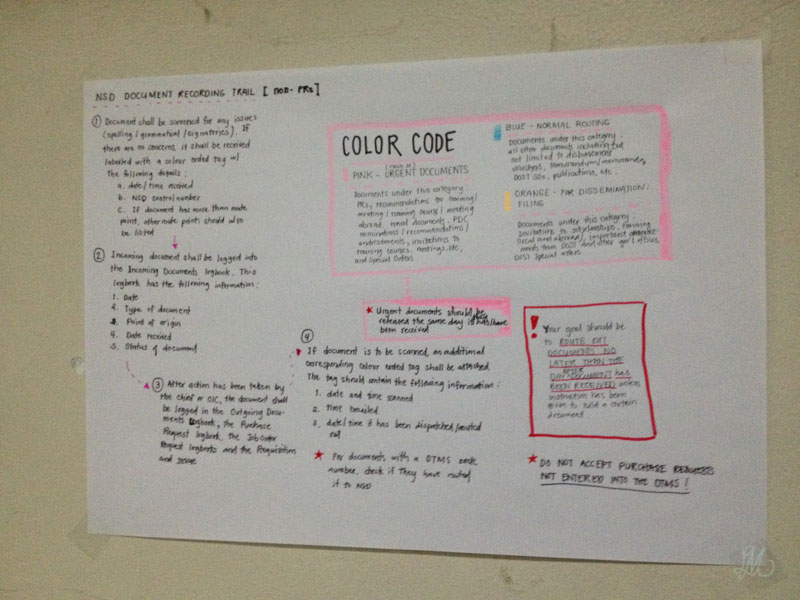 NSD DOCUMENT RECORDING TRAIL [non-PRs]
① Document shall be screened for any issues
(spelling/grammatical/signatories). If
there are no concerns, it shall be received
labeled with a colour coded tag w/
The following details:
a. date/time received
b. NSD control number
c. If document has more than one route
point, other route points should also
be listed
② Incoming document shall be logged into
the Incoming Documents logbook. This
logbook has the following information:
1. Date
2. Type of document
3. Point of origin
4. Date received
5. Status of document
③ After action has been taken by
the Chief or OIC, the document shall
be logged in the Outgoing Docu-
ments logbook, the Purchase
Request logbook, the Job Order
Request logbooks and the Requisition
and Issue
COLOR CODE
PINK - URGENT DOCUMENTS
Documents under this category:
PRs, recommendations for training/
meeting/training course/meeting
abroad, travel documents, PDC
nominations/recommendations/
endorsements, invitations to
training courses, meetings, etc,
and Special Orders
BLUE - NORMAL ROUTING
Documents under this category:
all other documents including but
not limited to disbursement
vouchers, memorandum/memoranda,
DOST SOs, publications, etc.
ORANGE - FOR DISSEMINATION;
FILING
Documents under this category
Invitations to scholarships, training
(local and abroad), important
from DOST and other gov't offices,
DOST Special Orders
★ Urgent documents should be
released the same day it has/have
been received
④ If document is to be scanned, an additional
corresponding colour coded tag shall be attached.
The tag should contain the following information:
1. date and time scanned
2. time
3. date/time it has been dispatched/routed
out
★ For documents with a DTMS
number, check if they have routed
it to NSD
! Your goal should be
to ROUTE OUT
DOCUMENTS NO
LATER THAN THE
DAY
DOCUMENT HAS
BEEN RECEIVED unless
instruction has been
given to hold a certain
document.
★ DO NOT ACCEPT PURCHASE REQUESTS
NOT ENTERED INTO THE DTMS!